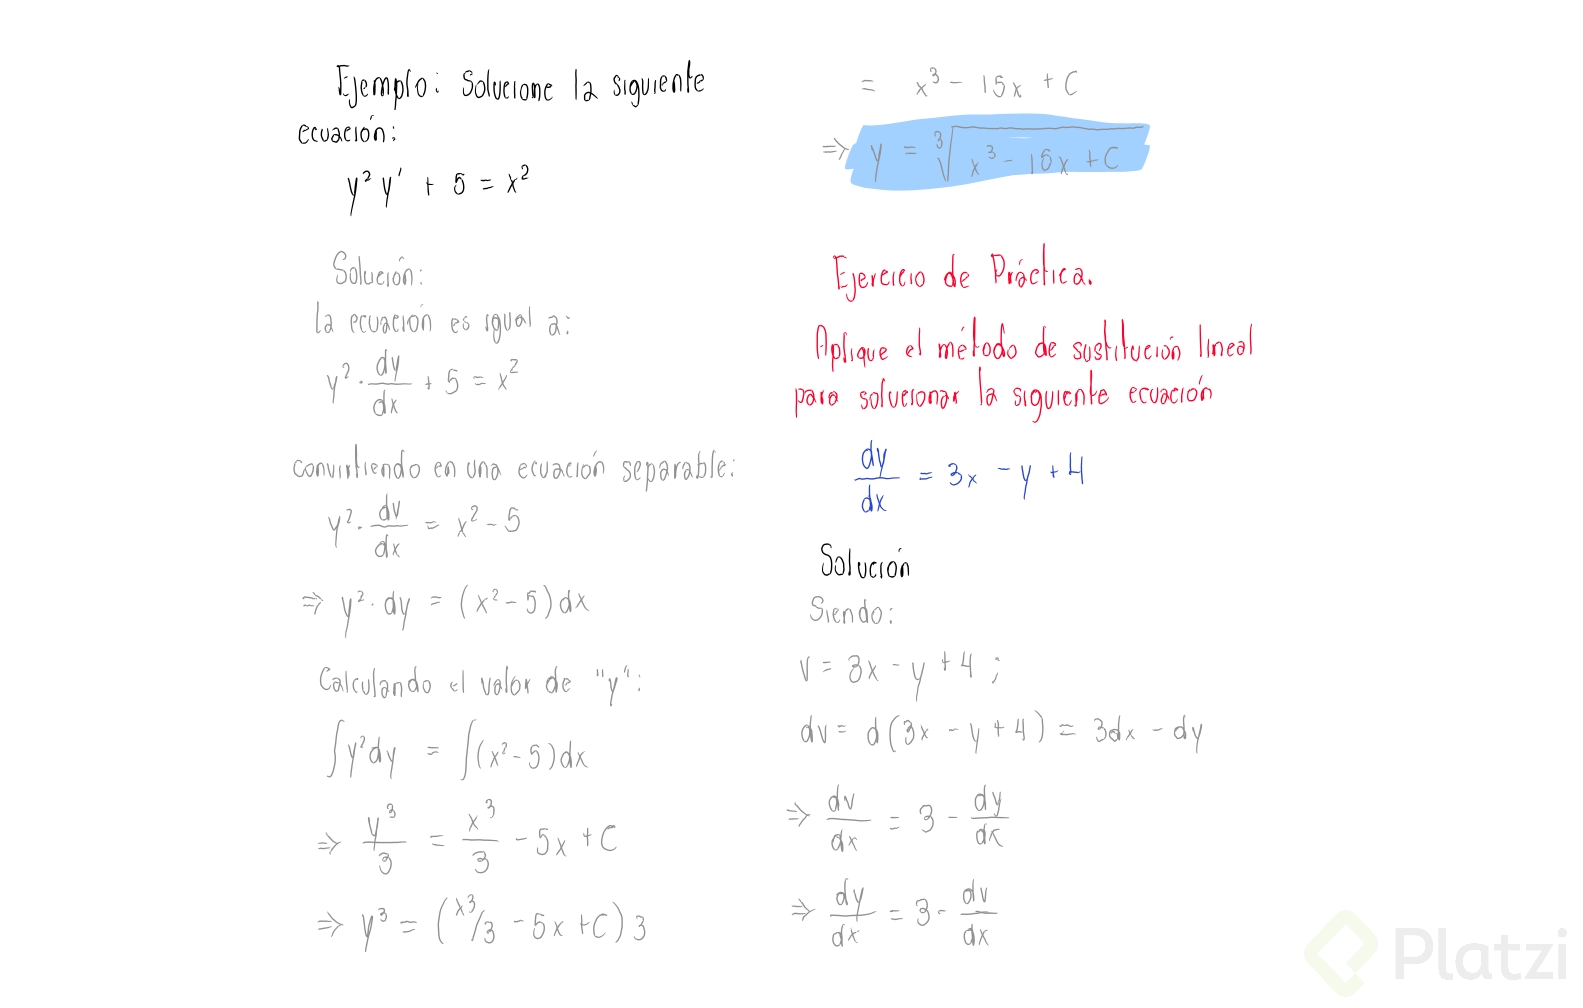 Ejemplo: Solucione la siguiente
ecuación:
y² y' + 5 = x²
Solución:
la ecuación es igual a:
y² · dy/dx + 5 = x²
convirtiendo en una ecuación separable:
y² · dy/dx = x² - 5
⇒ y² · dy = (x² - 5) dx
Calculando el valor de "y":
∫ y² dy = ∫ (x² - 5) dx
⇒ y³/3 = x³/3 - 5x + C
⇒ y³ = (x³/3 - 5x + C) 3
= x³ - 15x + C
⇒ y = ∛(x³ - 15x + C)
Ejercicio de Práctica.
Aplique el método de sustitución lineal
para solucionar la siguiente ecuación
dy/dx = 3x - y + 4
Solución
Siendo:
v = 3x - y + 4 ;
dv = d(3x - y + 4) = 3dx - dy
⇒ dv/dx = 3 - dy/dx
⇒ dy/dx = 3 - dv/dx
Platzi